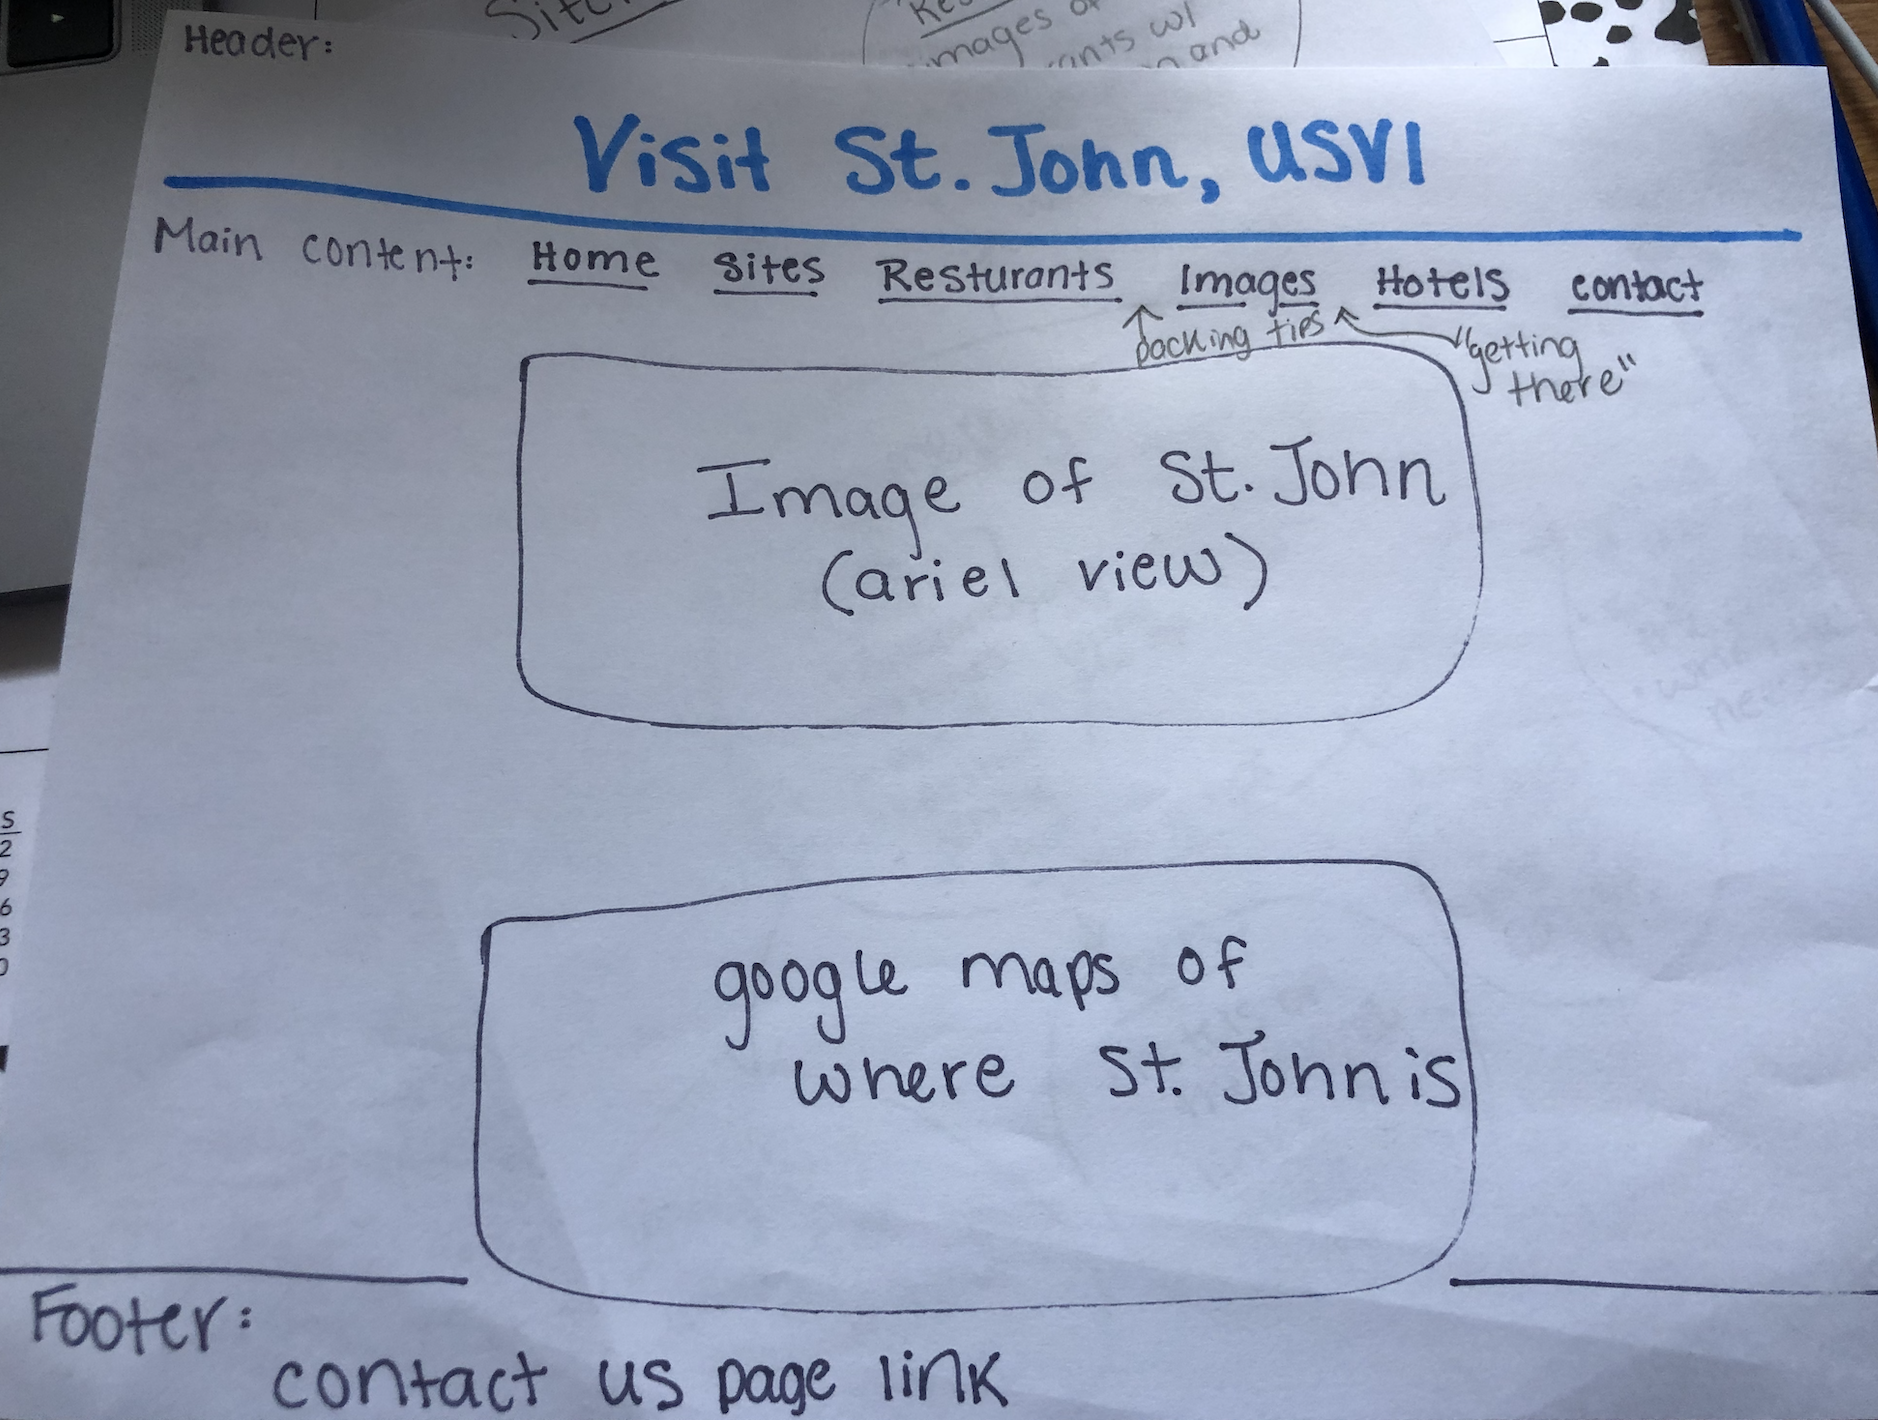 Site
Res
images of
rants w/
n and
Header:
Visit St. John, USVI
Main content: Home Sites Resturants Images Hotels contact
packing tips
"getting
there"
Image of St. John
(ariel view)
google maps of
where St. John is
S
2
9
6
3
Footer:
contact us page link